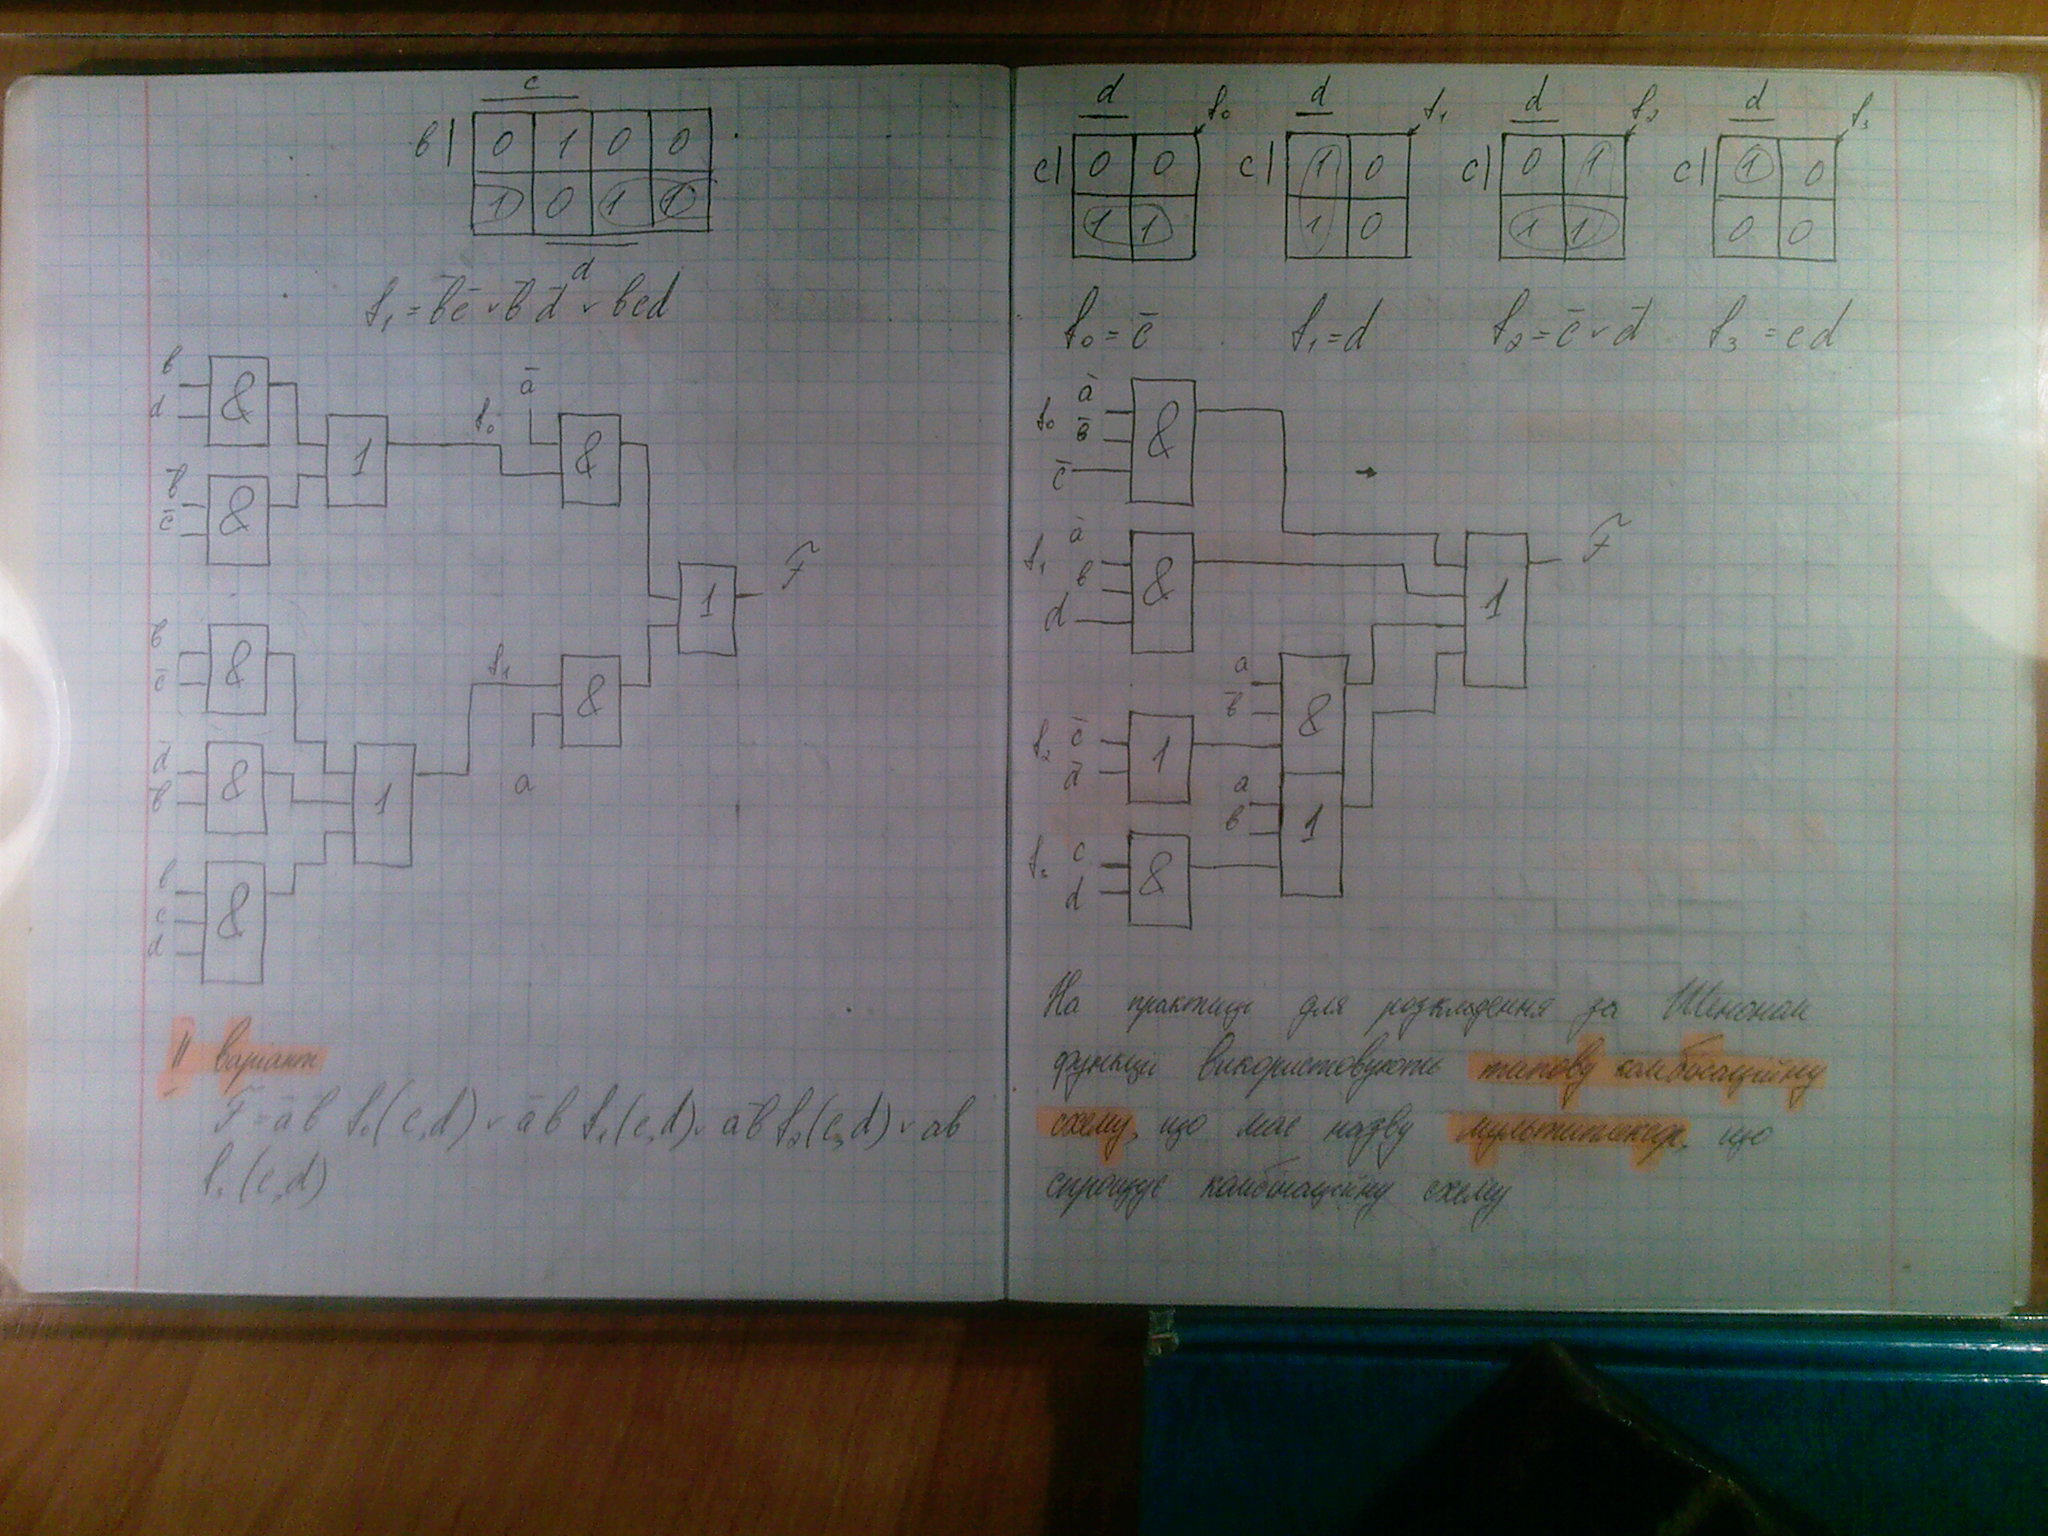 c
в | 0 1 0 0
1 0 1 1
d
f₁ = b̄c̄ ∨ b̄d̄ ∨ bcd
в
d
&
1
f₀
ā
&
в̄
c̄
&
1
F
в
c̄
&
f₁
&
d̄
в̄
&
1
a
в
c
d
&
II варіант
F = ā b̄ f₀(c,d) ∨ ā b f₁(c,d) ∨ a b̄ f₂(c,d) ∨ ab
f₃(c,d)
d f₀ d f₁ d f₂ d f₃
c | 0 0 c | 1 0 c | 0 1 c | 1 0
1 1 1 0 1 1 0 0
f₀ = c̄ f₁ = d f₂ = c̄ ∨ d̄ f₃ = cd
f₀
ā
в̄
c̄
&
f₁
ā
в
d
&
1
F
a
в̄
&
f₂
c̄
d̄
1
a
в
1
f₃
c
d
&
На практиці для розкладення за Шеноном
функції використовують типову комбінаційну
схему, що має назву мультиплексор, що
спрощує комбінаційну схему